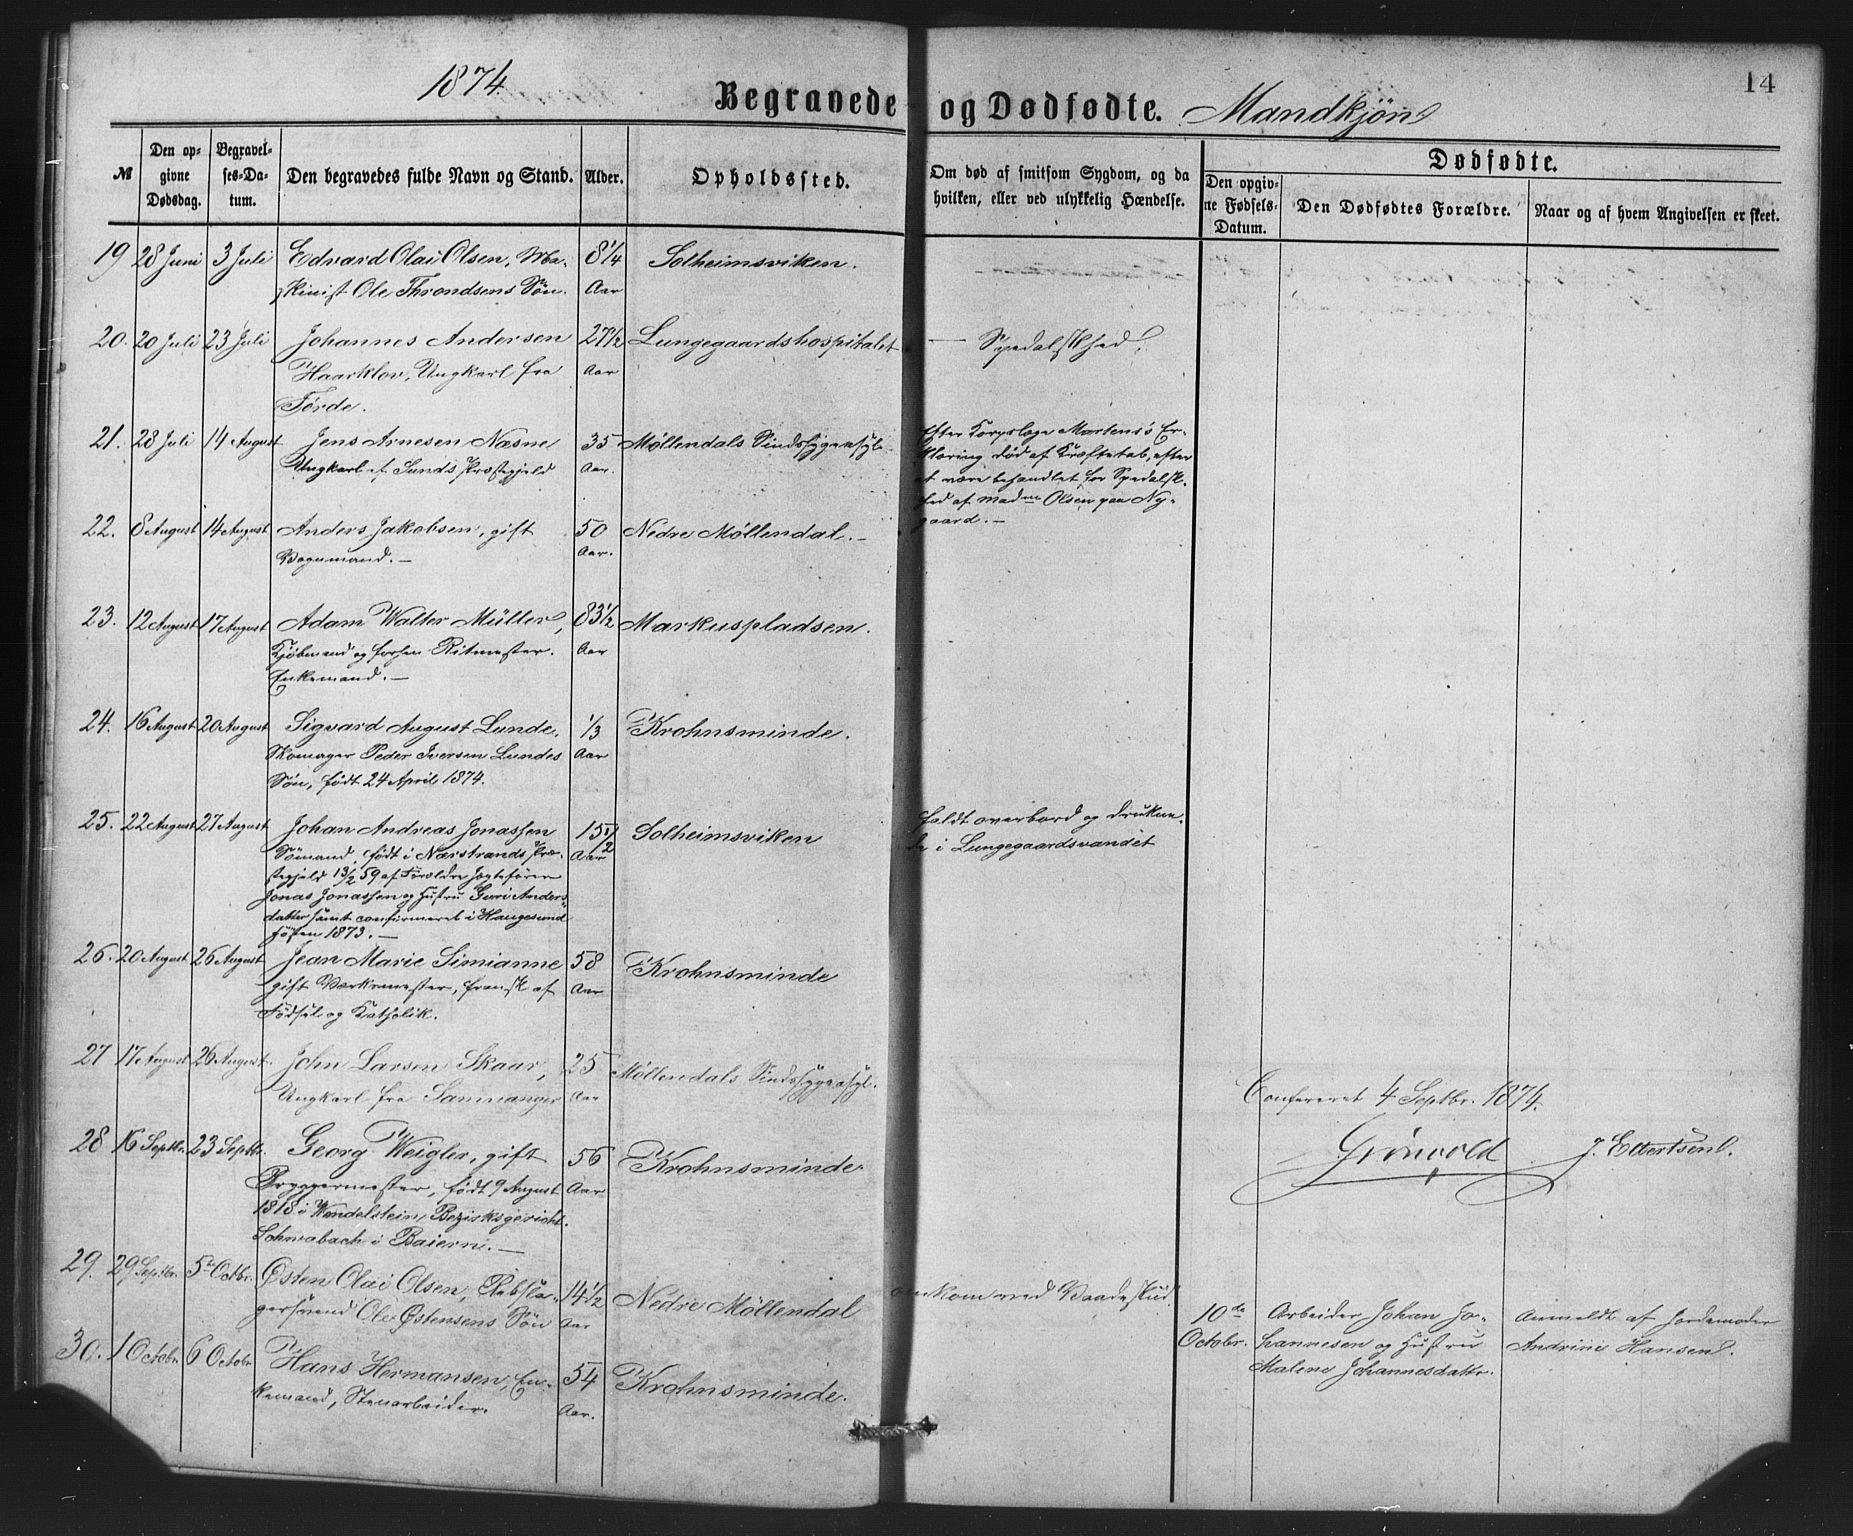 1874.
14
Begravede og Dødfødte. Mandkjøn
№
Den opgivne Dødsdag.
Begravelses-Datum.
Den begravedes fulde Navn og Stand.
Alder.
Opholdssted.
Om død af smitsom Sygdom, og da hvilken, eller ved ulykkelig Hændelse.
Dødfødte.
Den opgivne Fødsels-Datum.
Den Dødfødtes Forældre.
Naar og af hvem Angivelsen er skeet.
19 28 Juni 3 Juli Edvard Olai Olsen, Ma- 8 1/4 Solheimsviken.
skinist Ole Throndsens Søn. Aar
20. 20 Juli 23 Juli Johannes Andersen 27 1/2 Lungegaardshospitalet — Spedalskhed.
Haarklov, Ungkarl fra Aar
Førde.
21. 28 Juli 14 August Jens Arnesen Næsne 35 Møllendals Sindssygeasyl. Efter Korpslæge Martens's Er-
Ungkarl af Sunds Præstegjeld Aar. klæring død af Kræftetab, efter
at være behandlet for Spedalsk-
hed af mad^me Olsen paa Ny-
gaard.—
22. 8 August 14 August Anders Jakobsen, gift 50 Nedre Møllendal.—
Vognmand.— Aar.
23. 12 August 17 August Adam Walter Müller, 83 1/2 Markuspladsen.
Kjøbmand og forhen Ritmester. Aar
Enkemand.—
24. 16 August 20 August Sigvard August Lunde, 1/3 Krohnsminde.
Skomager Peder Iversen Lundes Aar
Søn, født 24 April 1874.
25. 22 August 27 August Johan Andreas Jonassen 15 1/2 Solheimsviken faldt overbord og drukne-
Sømand, født i Nærstrands Præ- Aar de i Lungegaardsvandet
stegjeld 13/2 59 af Forældre Jægtefører
Jonas Jonassen og Hustru Guri Anders-
datter samt confirmeret i Haugesund
høsten 1873.—
26. 20 August 26 August Jean Marie Simianne 58 Krohnsminde
gift Værkmester, fransk af Aar
Fødsel og Katholik.
27 17 August 26 August. John Larsen Skaar, 25 Møllendals Sindssygeasyl.
Ungkarl fra Samnanger Aar
Confereret 4 Septbr. 1874.
Grönvold J. Ellertsen
28 16 Septbr. 23 Septbr. Georg Weigler, gift 56 Krohnsminde.
Bryggermester, født 9 August Aar
1818 i Wendelstein, Bezirksgericht
Schwabach i Baiern.—
29. 29 Septbr. 5te Octbr. Østen Olai Olsen, Rebsla- 14 1/2 Nedre Møllendal omkom ved Vaadeskud
gersvend Ole Østensens Søn Aar
10de Octobr. Arbeider Johan Jo- Anmeldt af Jordemoder
hannesen og Hustru Andrine Hansen.
Malene Johannesdatter.
30. 1 Octobr 6 Octobr Hans Hermansen, En- 54 Krohnsminde.
kemand, Stenarbeider. Aar.